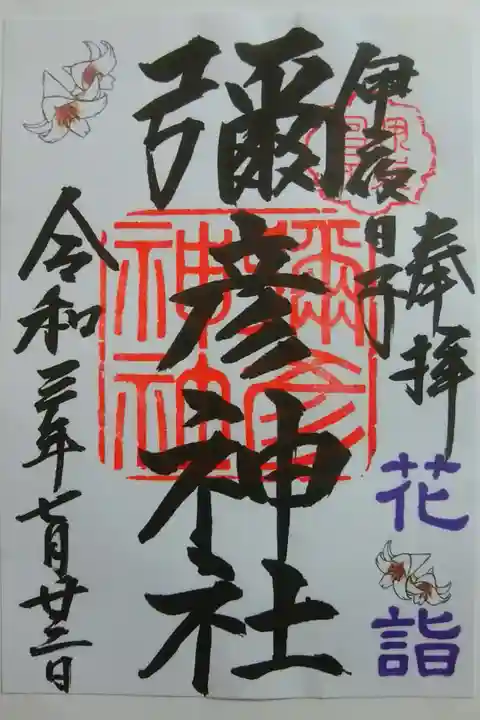 奉拝
花詣
伊夜日子
彌彦神社
彌彦神社
令和三年七月廿三日